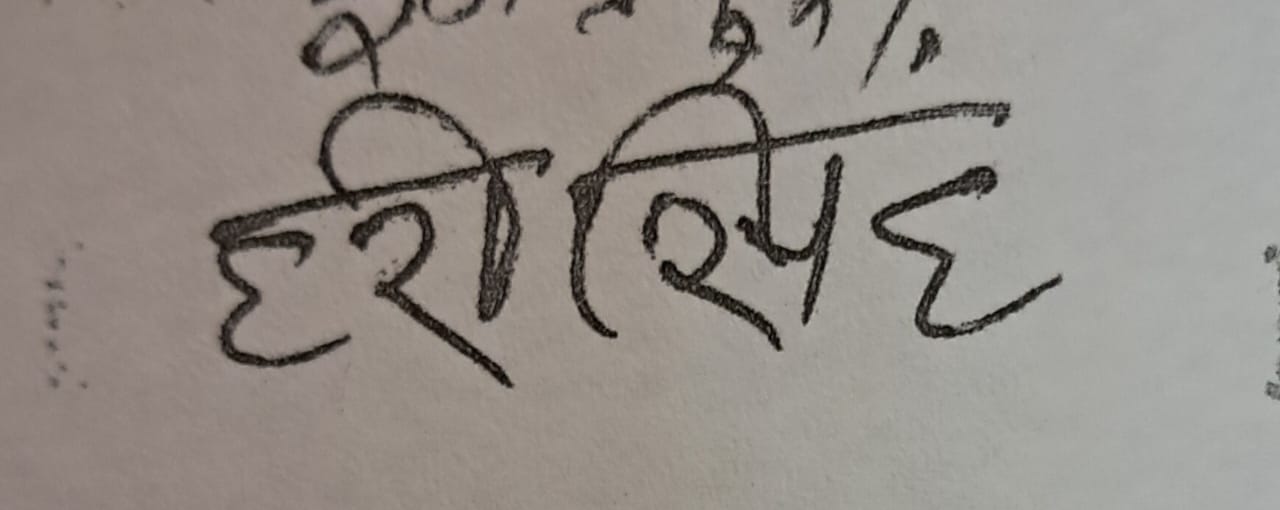 हरीसिंह